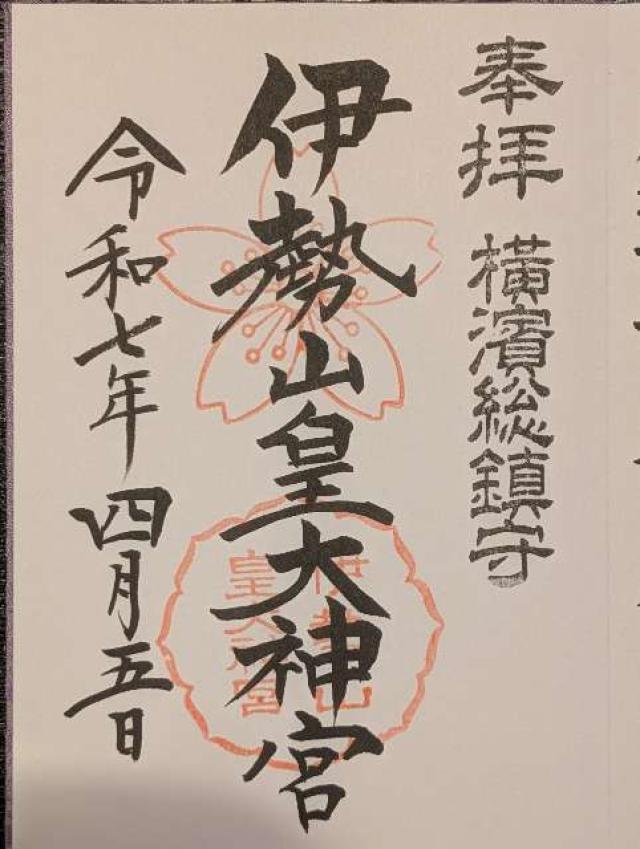 奉拝 横濱総鎮守
伊勢山皇大神宮
伊勢山
皇大神宮
令和七年 四月五日